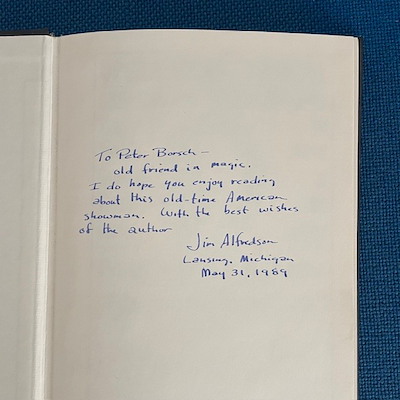 To Peter Borsch –
old friend in magic.
I do hope you enjoy reading
about this old-time American
showman. With the best wishes
of the author
Jim Alfredson
Lansing, Michigan
May 31, 1989